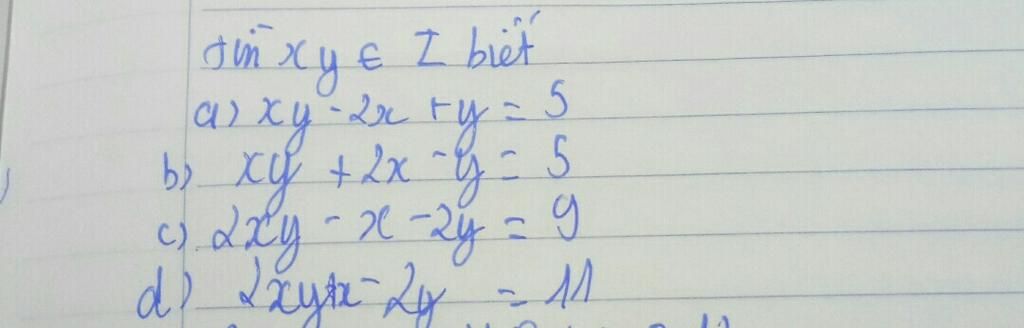 tìm x y ∈ Z biết
a) xy - 2x + y = 5
b) xy + 2x - y = 5
c) 2xy - x - 2y = 9
d) 2xy + x - 2y = 11